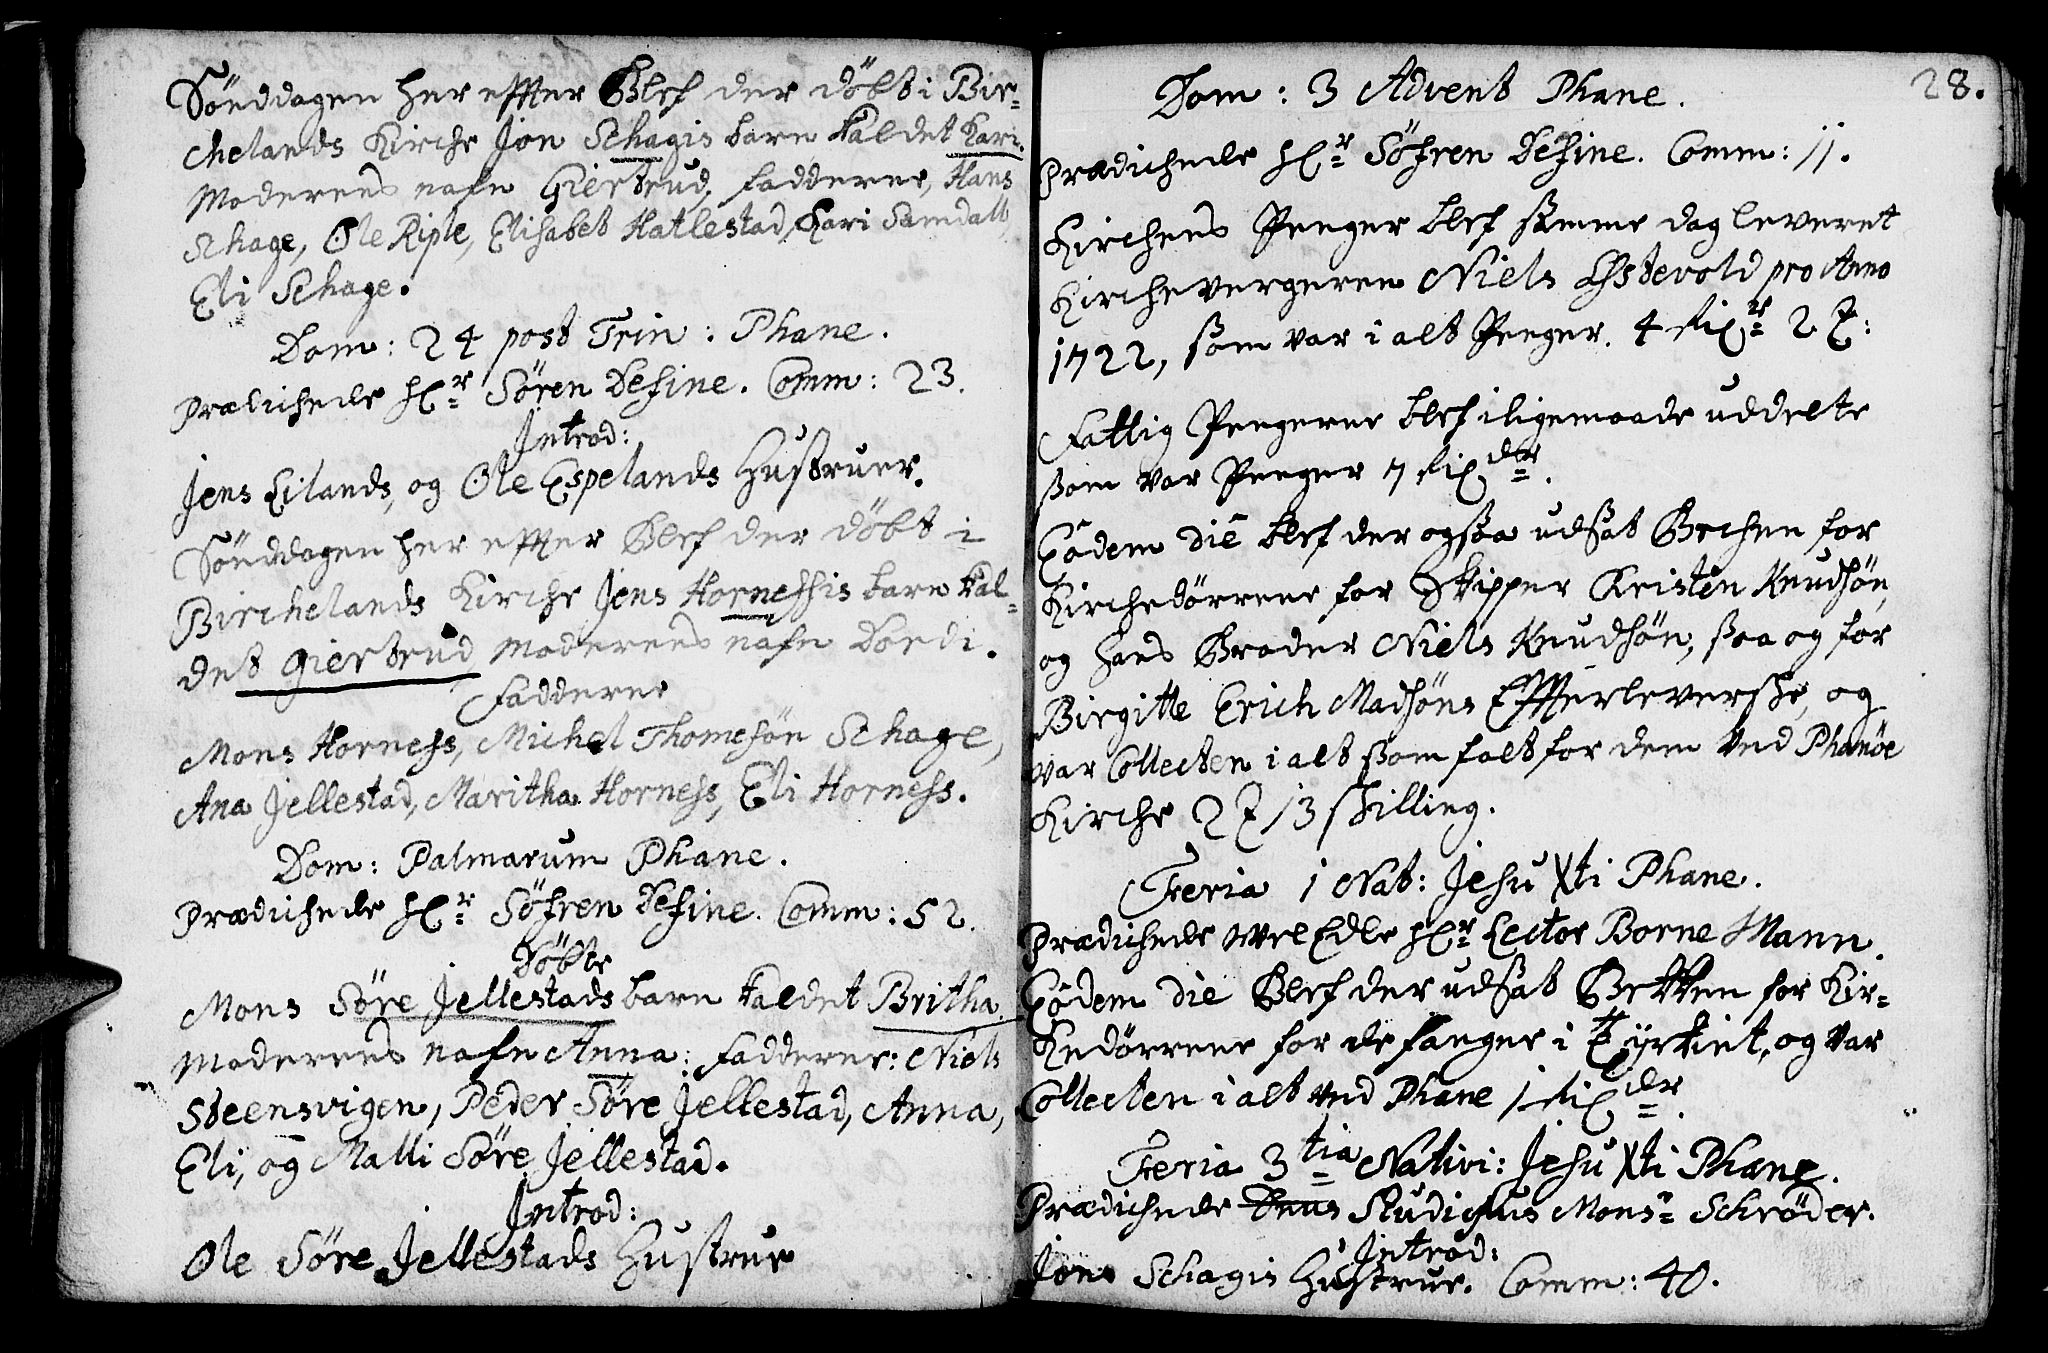 Sönddagen her effter Blef der döbt i Bir-
chelands Kirche Jon Schagis barn kaldet Kari.
Moderens nafn Giertrud, Fadderne, Hans
Schage, Ole Riple, Elisabet Hatlestad, Kari Samdall
Eli Schage.
Dom: 24 post Trin: Phane.
Prædichede Hr Sören Define. Comm: 23.
Introd:
Jens Eilands, og Ole Espelands Hustruer.
Sönddagen her effter Blef der döbt i
Birchelands Kirche Jens Hornessis barn kal-
det Giertrud Moderens nafn Dordi.
Fadderne
Mons Horness, Michel Thomesön Schage,
Ana Jellestad, Maritha Horness, Eli Horness.
Dom: Palmarum Phane.
Prædichede Hr Söfren Define. Comm: 52.
Döbte
Mons Söre Jellestads barn kaldet Britha.
Moderens nafn Anna: Fadderne: Niels
Steensvigen, Peder Söre Jellestad, Anna,
Eli, og Malli Söre Jellestad.
Introd:
Ole Söre Jellestads Hustrue
28.
Dom: 3 Advent Phane.
Prædichede Hr Söfren Define. Comm: 11.
Kirchens Penger blef samme dag leveret
Kirchevergeren Niels Östevold pro Anno
1722, som var i alt Penger. 4 Rixdr 2
Fattig Pengerne blef iligemaade uddelte
som var Penger 7 Rixdlr.
Eodem die blef der ogsaa udsat Bechen for
Kirchedörrene for Skipper Kristen Knudsön,
og hans Broder Niels Knudsön, saa og for
Birgitte Erich Madsöns Effterleverske, og
var Collecten i alt som falt for dem ved Phanöe
Kirche 2 13 skilling.
Feria 1 Nat: Jesu Xti Phane.
Prædichede WelEdle Hr Lector Borne Mann.
Eodem die Blef der udsat Bekken for Kir-
kedörrene for de fanger i Tyrkiet, og var
Collecten i alt ved Phane 1 Rixdr.
Feria 3tia Nativi: Jesu Xti Phane.
Prædichede Studiosus Monsr Schröder.
Introd:
Jons Schagis Hustrue. Comm: 40.